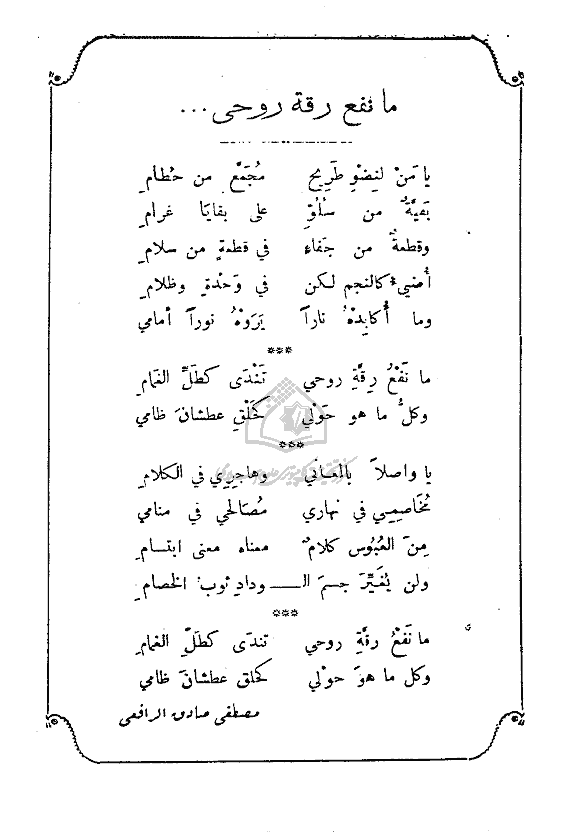 ما نفع رقة روحى...
يا مَنْ لنِضْوٍ طَرِيحٍ مُجَمَّعٍ من حُطامِ
بَقيَّةٌ من سُلُوٍّ على بقايَا غرامِ
وقطعةٌ من جَفاءٍ في قطعةٍ من سلامِ
أُضيءُ كالنجم لكن في وَحْدةٍ وظلامِ
وما أُكابِدُهُ ناراً يَرَوْهُ نوراً أمامي
***
ما نَفْعُ رِقَّةِ روحي تَنْدَى كطَلِّ الغمامِ
وكلُّ ما هو حَوْلي كَخَلْقِ عطشانَ ظامي
***
يا واصلاً بالمعاني وهاجري في الكلامِ
مُخاصِمِي في نهاري مُصَالحي في منامي
مِنَ العُبُوسِ كلامٌ معناه معنى ابتسامِ
ولن يُغَيِّرَ جسمَ الـــودادِ ثوبُ الخصامِ
***
ما نَفْعُ رِقَّةِ روحي تندَى كطَلِّ الغمامِ
وكل ما هوَ حوْلي كخلق عطشانَ ظامي
مصطفى صادق الرافعى